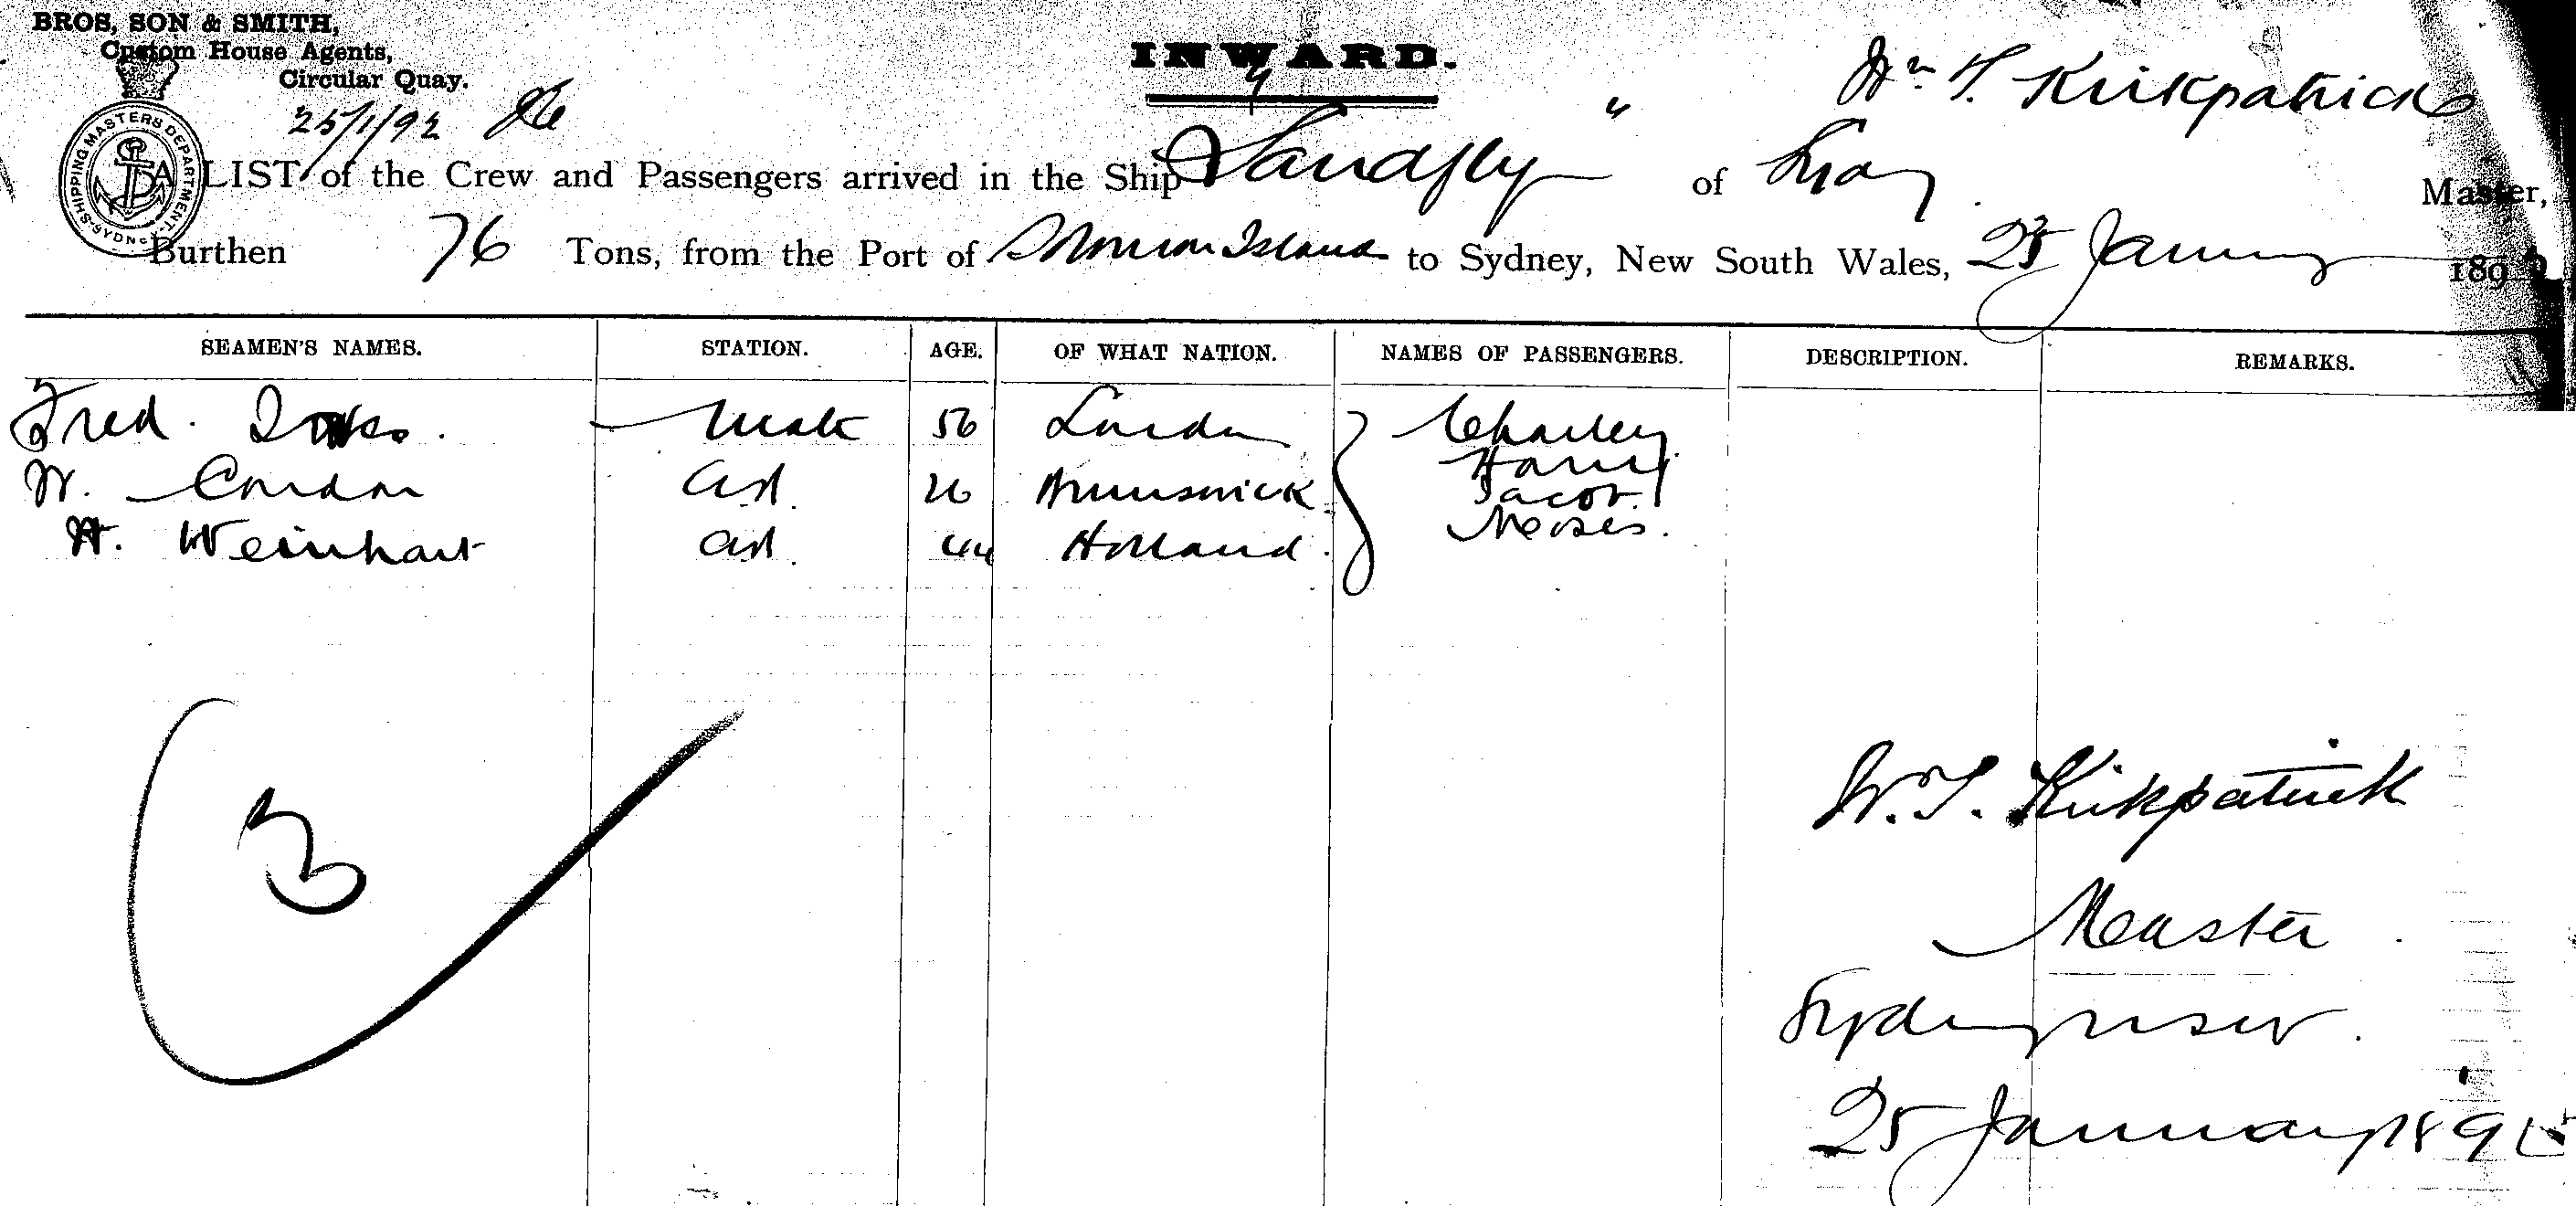 BROS, SON & SMITH,
Custom House Agents,
Circular Quay.
25/1/92
INWARD.
SHIPPING MASTERS DEPARTMENT SYDNEY
Wm T. Kirkpatrick
A LIST of the Crew and Passengers arrived in the Ship "Sandfly" of Master,
Burthen 76 Tons, from the Port of Solomon Islands to Sydney, New South Wales, 25 January 189
SEAMEN'S NAMES. STATION. AGE. OF WHAT NATION. NAMES OF PASSENGERS. DESCRIPTION. REMARKS.
Fred. Mate 56 London Charley
Harry
W. Condon AB. 26 Brunswick Jacob.
Moses.
H. Weinhart AB. 44 Holland.
3
W. T. Kirkpatrick
Master
Sydney NSW.
25 January 189